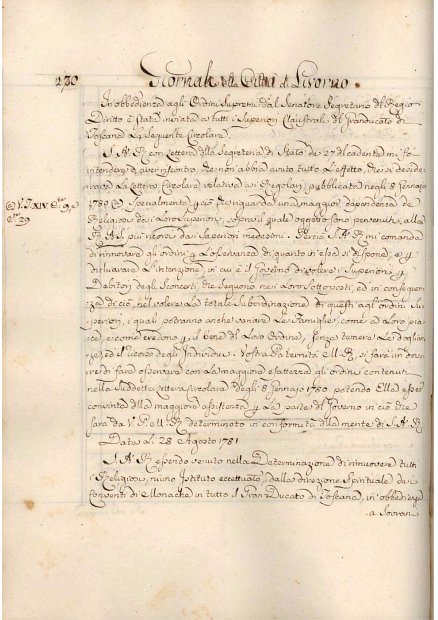 230 Giornale della Città di Livorno.
In obbedienza agli Ordini Supremi dal Senatore Segretario del Regio
Diritto è stata inviata a tutti i Superiori Claustrali del Granducato di
Toscana la Seguente Circolare.
S. A. R. con Lettera della Segreteria di Stato de 27 del cadente mi fa
intendere d'aver riscontro, che non abbia avuto tutto l'effetto, che si deside-
rava la Lettera Circolare relativa ai Regolari, pubblicata negli 8 Gennajo
1780 Specialmente in ciò che riguarda una maggior dependenza de
Religiosi dai loro Superiori, sopra il quale oggetto sono pervenute alla
R. A. S. più ricorsi dai Superiori medesimi. Perciò S. A. R. mi comanda
di rinnovare gli ordini p. l'osservanza di quanto in essa si dispone, e
dichiarare l'intenzione, in cui è il Governo di volere i Superiori
Debitori degli Sconcerti, che Seguono nei loro Sottoposti, ed in conseguen-
za di ciò, nel volere la totale Subordinazione di questi agli ordini Su-
periori, i quali potranno anche variare le Famiglie, come a Loro pia-
ce, e come credono p. il bene del Loro Ordine, senza temere le doglian-
ze, ed il ricorso degli Individui. Vostra Paternità M. R. si farà un dove-
re di fare osservare con la maggiore esattezza gli ordini contenuti
nella suddetta Lettera Circolare degli 8 Gennajo 1780 potendo Ella esser
convinta della maggiore assistenza p. la parte del Governo in ciò che
sarà da V. P. M. R. determinato in conformità alla mente di S. A. R.
Data Li 28 Agosto 1781.
S. A. R. essendo venuto nella Determinazione di rimuovere tutti
i Religiosi, niuno Istituto eccettuato, dalla direzione Spirituale de
Conventi di Monache in tutto il Gran Ducato di Toscana, in obbedienza
a Sovran
V. T. XIV. 9, e
29